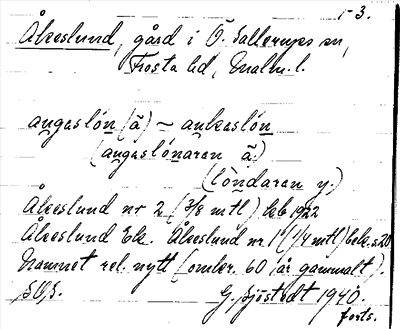 1-3.
Åkeslund, gård i Ö. Sallerups sn,
Frosta hd, Malm. l.
augaslón (ä) ~ aukaslón
(augaslónaran ä.)
(lòndaran y.)
Åkeslund nr 2 (3/8 mtl) beb 1922
Åkeslund Ek. Åkeslund nr 1 (1/4 mtl) bebk. s. 20
Namnet rel. nytt (omkr. 60 år gammalt).
G. Sjöstedt 1940.
forts.